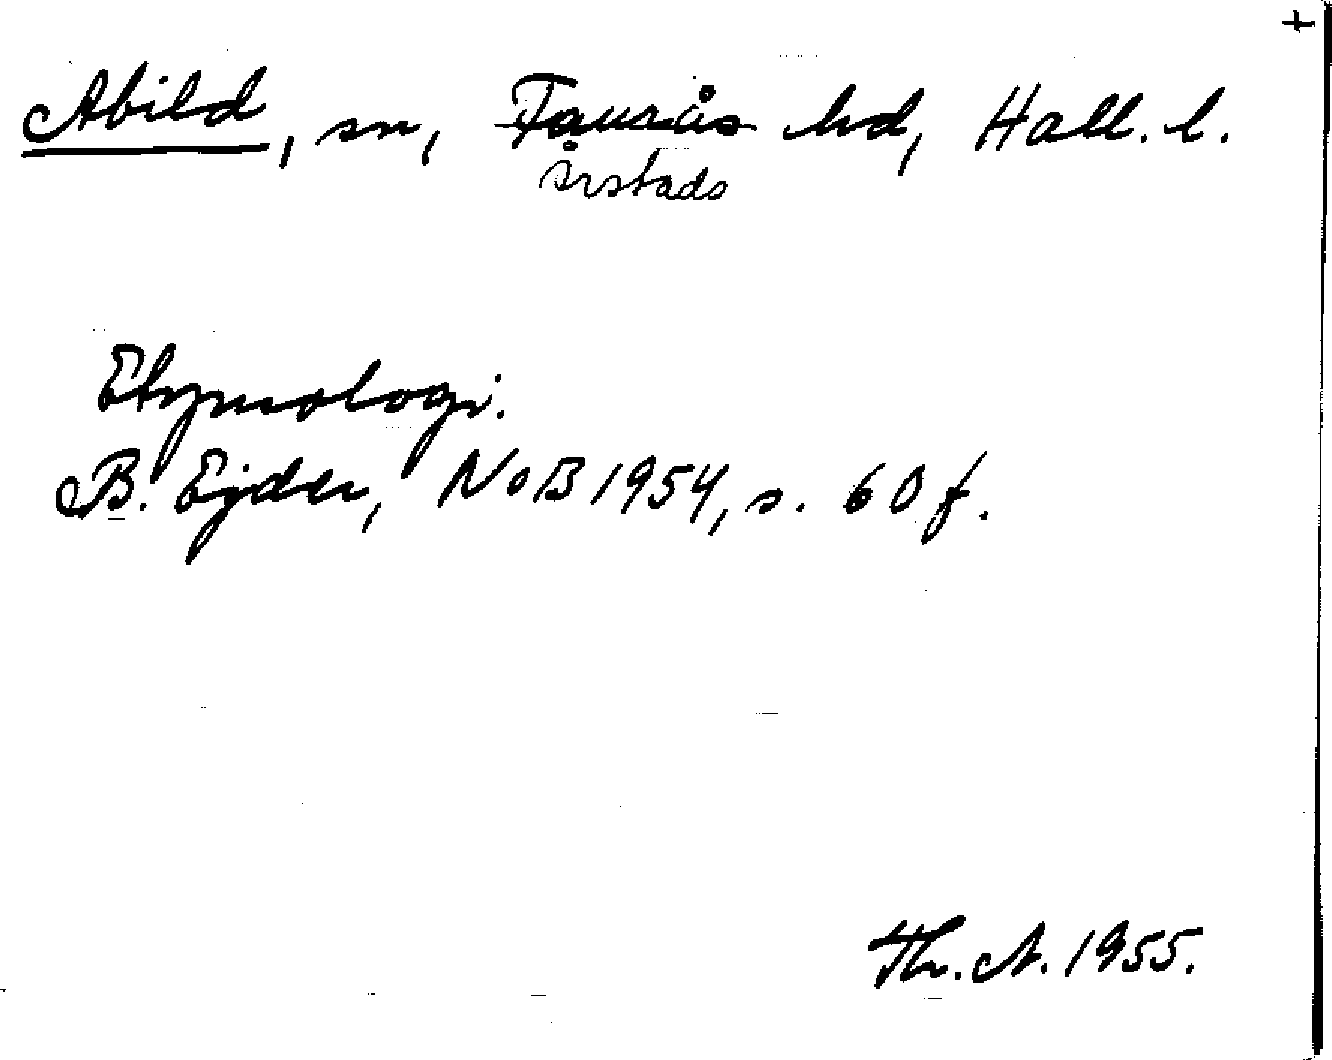 +
Abild, sn, Faurås hd, Hall. l.
Årstads
Etymologi.
B. Ejder, NoB 1954, s. 60 f.
Th. A. 1955.